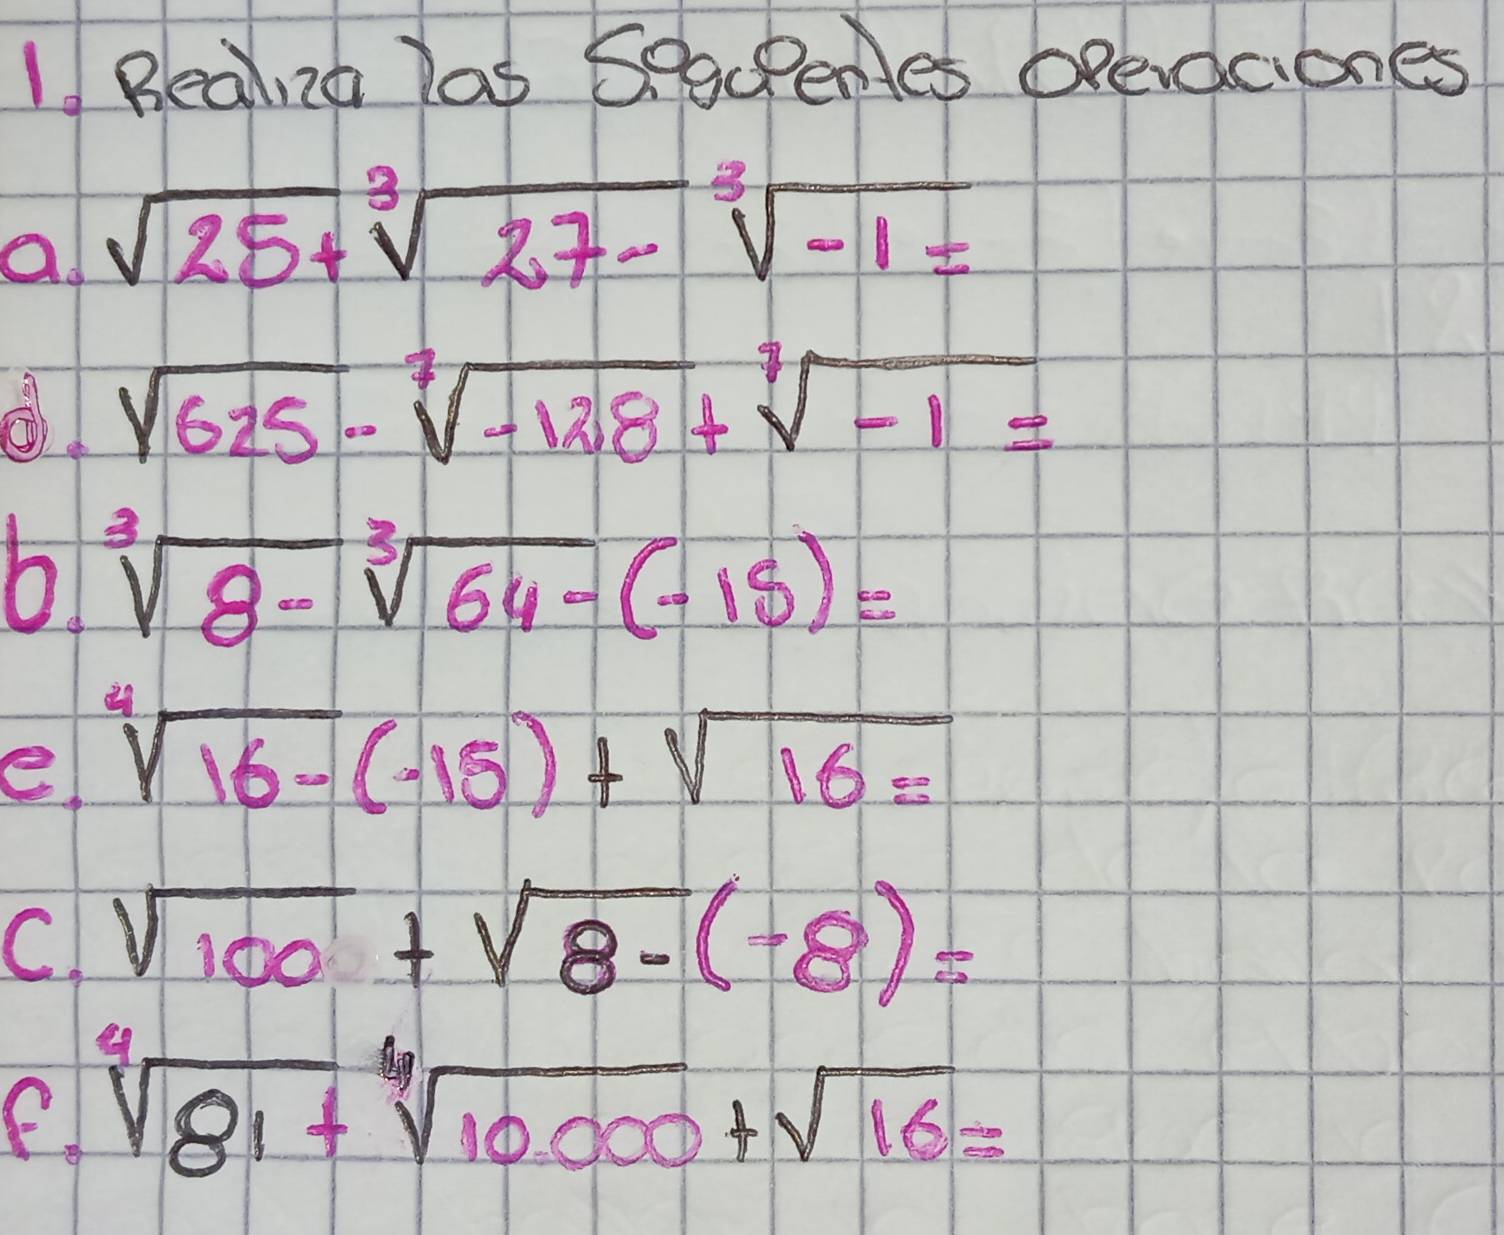 1. Realiza las Siguientes operaciones
a. √25 + ³√27 - ³√-1 =
d. √625 - ⁷√-128 + ⁷√-1 =
b. ³√8 - ³√64 - (-15) =
e. ⁴√16 - (-15) + √16 =
c. √100 + √8 - (-8) =
f. ⁴√81 + ⁴√10.000 + √16 =